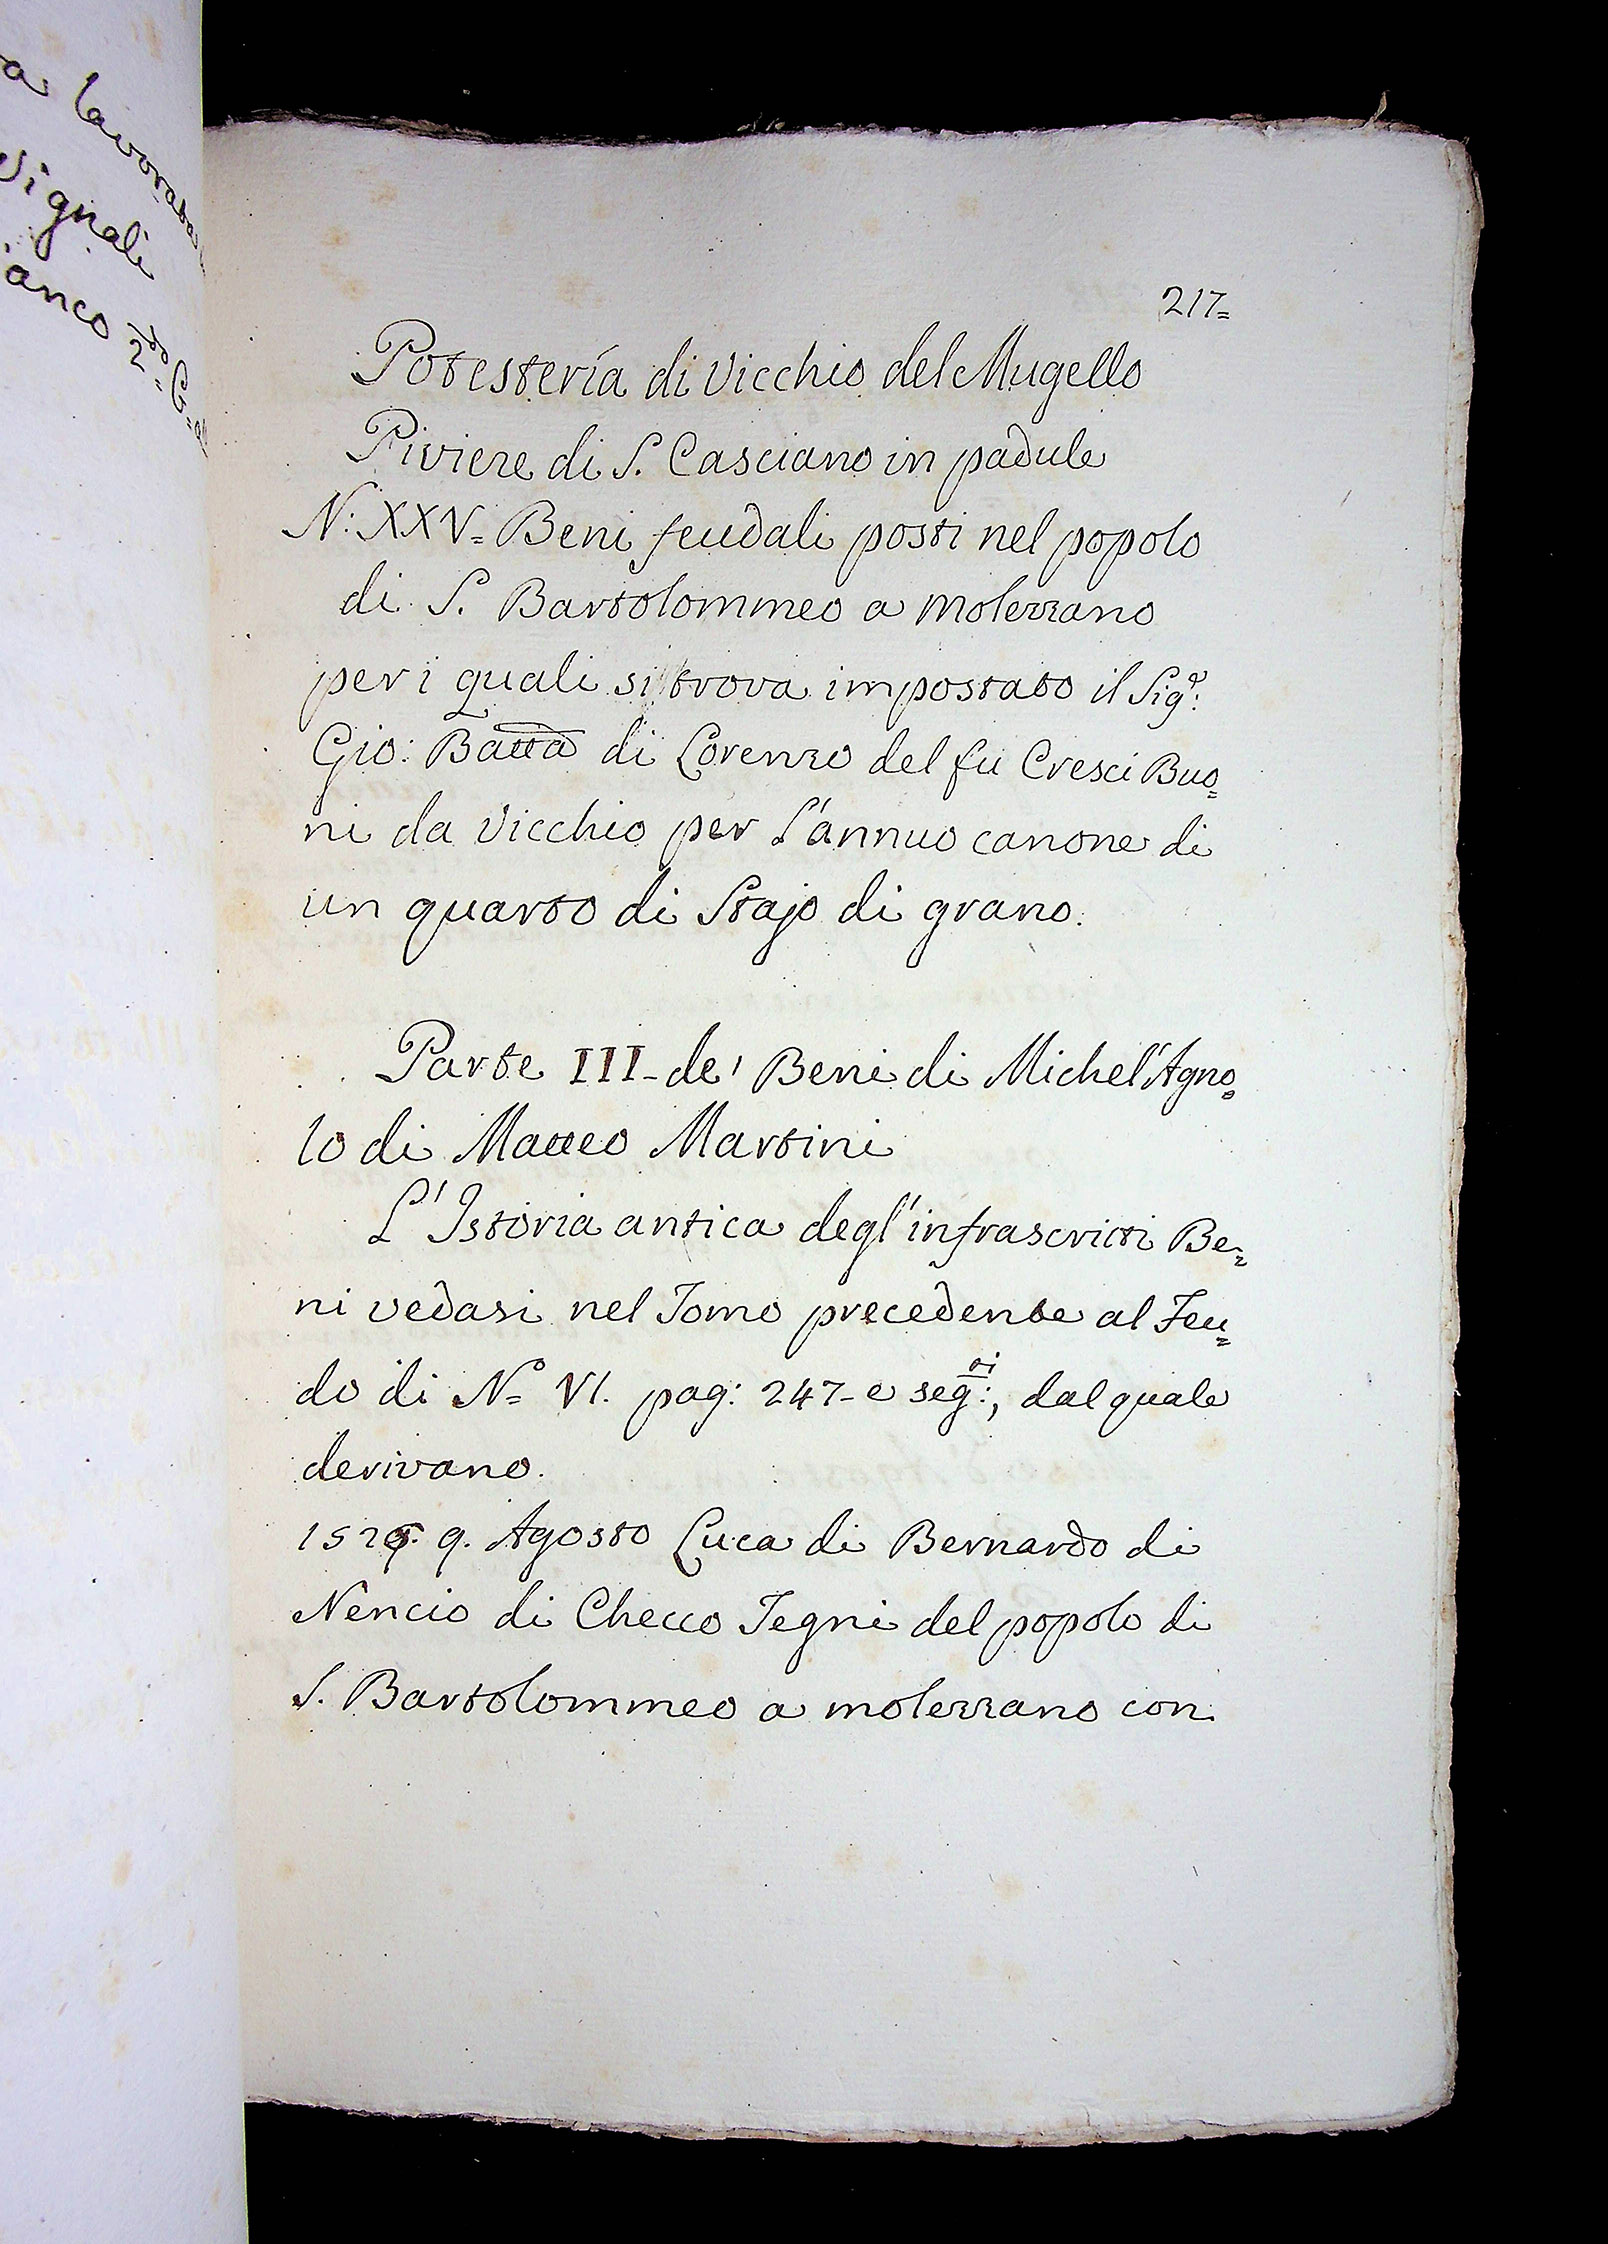 a lavorata
vignali
anco 2.do G.
217=
Potestería di Vicchio del Mugello
Piviere di S. Casciano in padule
N: XXV= Beni feudali posti nel popolo
di S. Bartolommeo a Molezzano
per i quali si trova impostato il Sig.r:
Gio: Batta di Lorenzo del fu Cresci Buo=
ni da Vicchio per l'annuo canone di
un quarto di Stajo di grano.
Parte III- de' Beni di Michel'Agno=
lo di Matteo Martini
L'Istoria antica degl'infrascritti Be=
ni vedasi nel Tomo precedente al Feu=
do di N=o VI. pag: 247- e seg:oi, dal quale
derivano.
9. Agosto Luca di Bernardo di
Nencio di Checco Tegni del popolo di
S. Bartolommeo a molezzano con